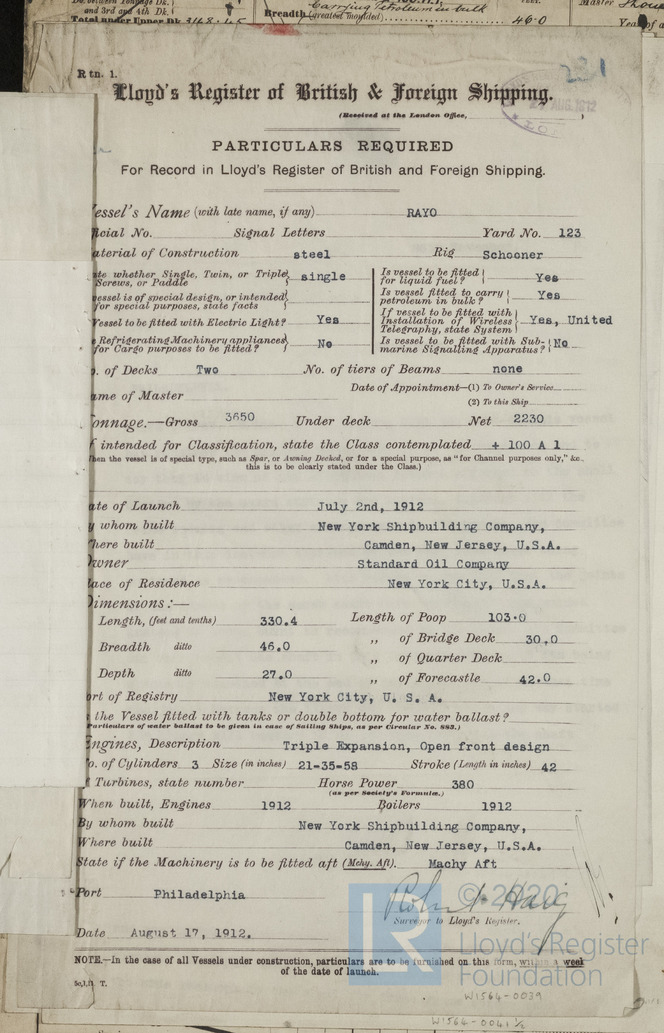 and 3rd and 4th Dk.
Total under Upper Dk 3148.45
Breadth (greatest moulded) 46.0
carrying petroleum in bulk
Master
Rtn. 1.
231
AUG. 1912
Lloyd's Register of British & Foreign Shipping.
(Received at the London Office, )
PARTICULARS REQUIRED
For Record in Lloyd's Register of British and Foreign Shipping.
essel's Name (with late name, if any) RAYO
cial No. Signal Letters Yard No. 123
aterial of Construction steel Rig Schooner
te whether Single, Twin, or Triple Screws, or Paddle single
Is vessel to be fitted for liquid fuel? Yes
essel is of special design, or intended for special purposes, state facts
Is vessel fitted to carry petroleum in bulk? Yes
Vessel to be fitted with Electric Light? Yes
If vessel to be fitted with Installation of Wireless Telegraphy, state System Yes, United
Refrigerating Machinery appliances for Cargo purposes to be fitted? No
Is vessel to be fitted with Submarine Signalling Apparatus? No
o. of Decks Two No. of tiers of Beams none
ame of Master Date of Appointment—(1) To Owner's Service
(2) To this Ship
onnage.—Gross 3650 Under deck Net 2230
f intended for Classification, state the Class contemplated + 100 A 1
hen the vessel is of special type, such as Spar, or Awning Decked, or for a special purpose, as "for Channel purposes only," &c.
this is to be clearly stated under the Class.)
ate of Launch July 2nd, 1912
y whom built New York Shipbuilding Company,
here built Camden, New Jersey, U.S.A.
Owner Standard Oil Company
lace of Residence New York City, U.S.A.
Dimensions:—
Length, (feet and tenths) 330.4 Length of Poop 103.0
Breadth ditto 46.0 „ of Bridge Deck 30.0
„ of Quarter Deck
Depth ditto 27.0 „ of Forecastle 42.0
ort of Registry New York City, U. S. A.
the Vessel fitted with tanks or double bottom for water ballast?
Particulars of water ballast to be given in case of Sailing Ships, as per Circular No. 882.)
Engines, Description Triple Expansion, Open front design
o. of Cylinders 3 Size (in inches) 21-35-58 Stroke (Length in inches) 42
f Turbines, state number Horse Power 380
(as per Society's Formula.)
When built, Engines 1912 Boilers 1912
By whom built New York Shipbuilding Company,
Where built Camden, New Jersey, U.S.A.
State if the Machinery is to be fitted aft (Mchy. Aft). Machy Aft
Port Philadelphia
Robert Haig
Surveyor to Lloyd's Register.
Date August 17, 1912.
© 2020
LR
Lloyd's Register
Foundation
NOTE.—In the case of all Vessels under construction, particulars are to be furnished on this form, within a week
of the date of launch.
W1564-0039
W1564-0041 ½